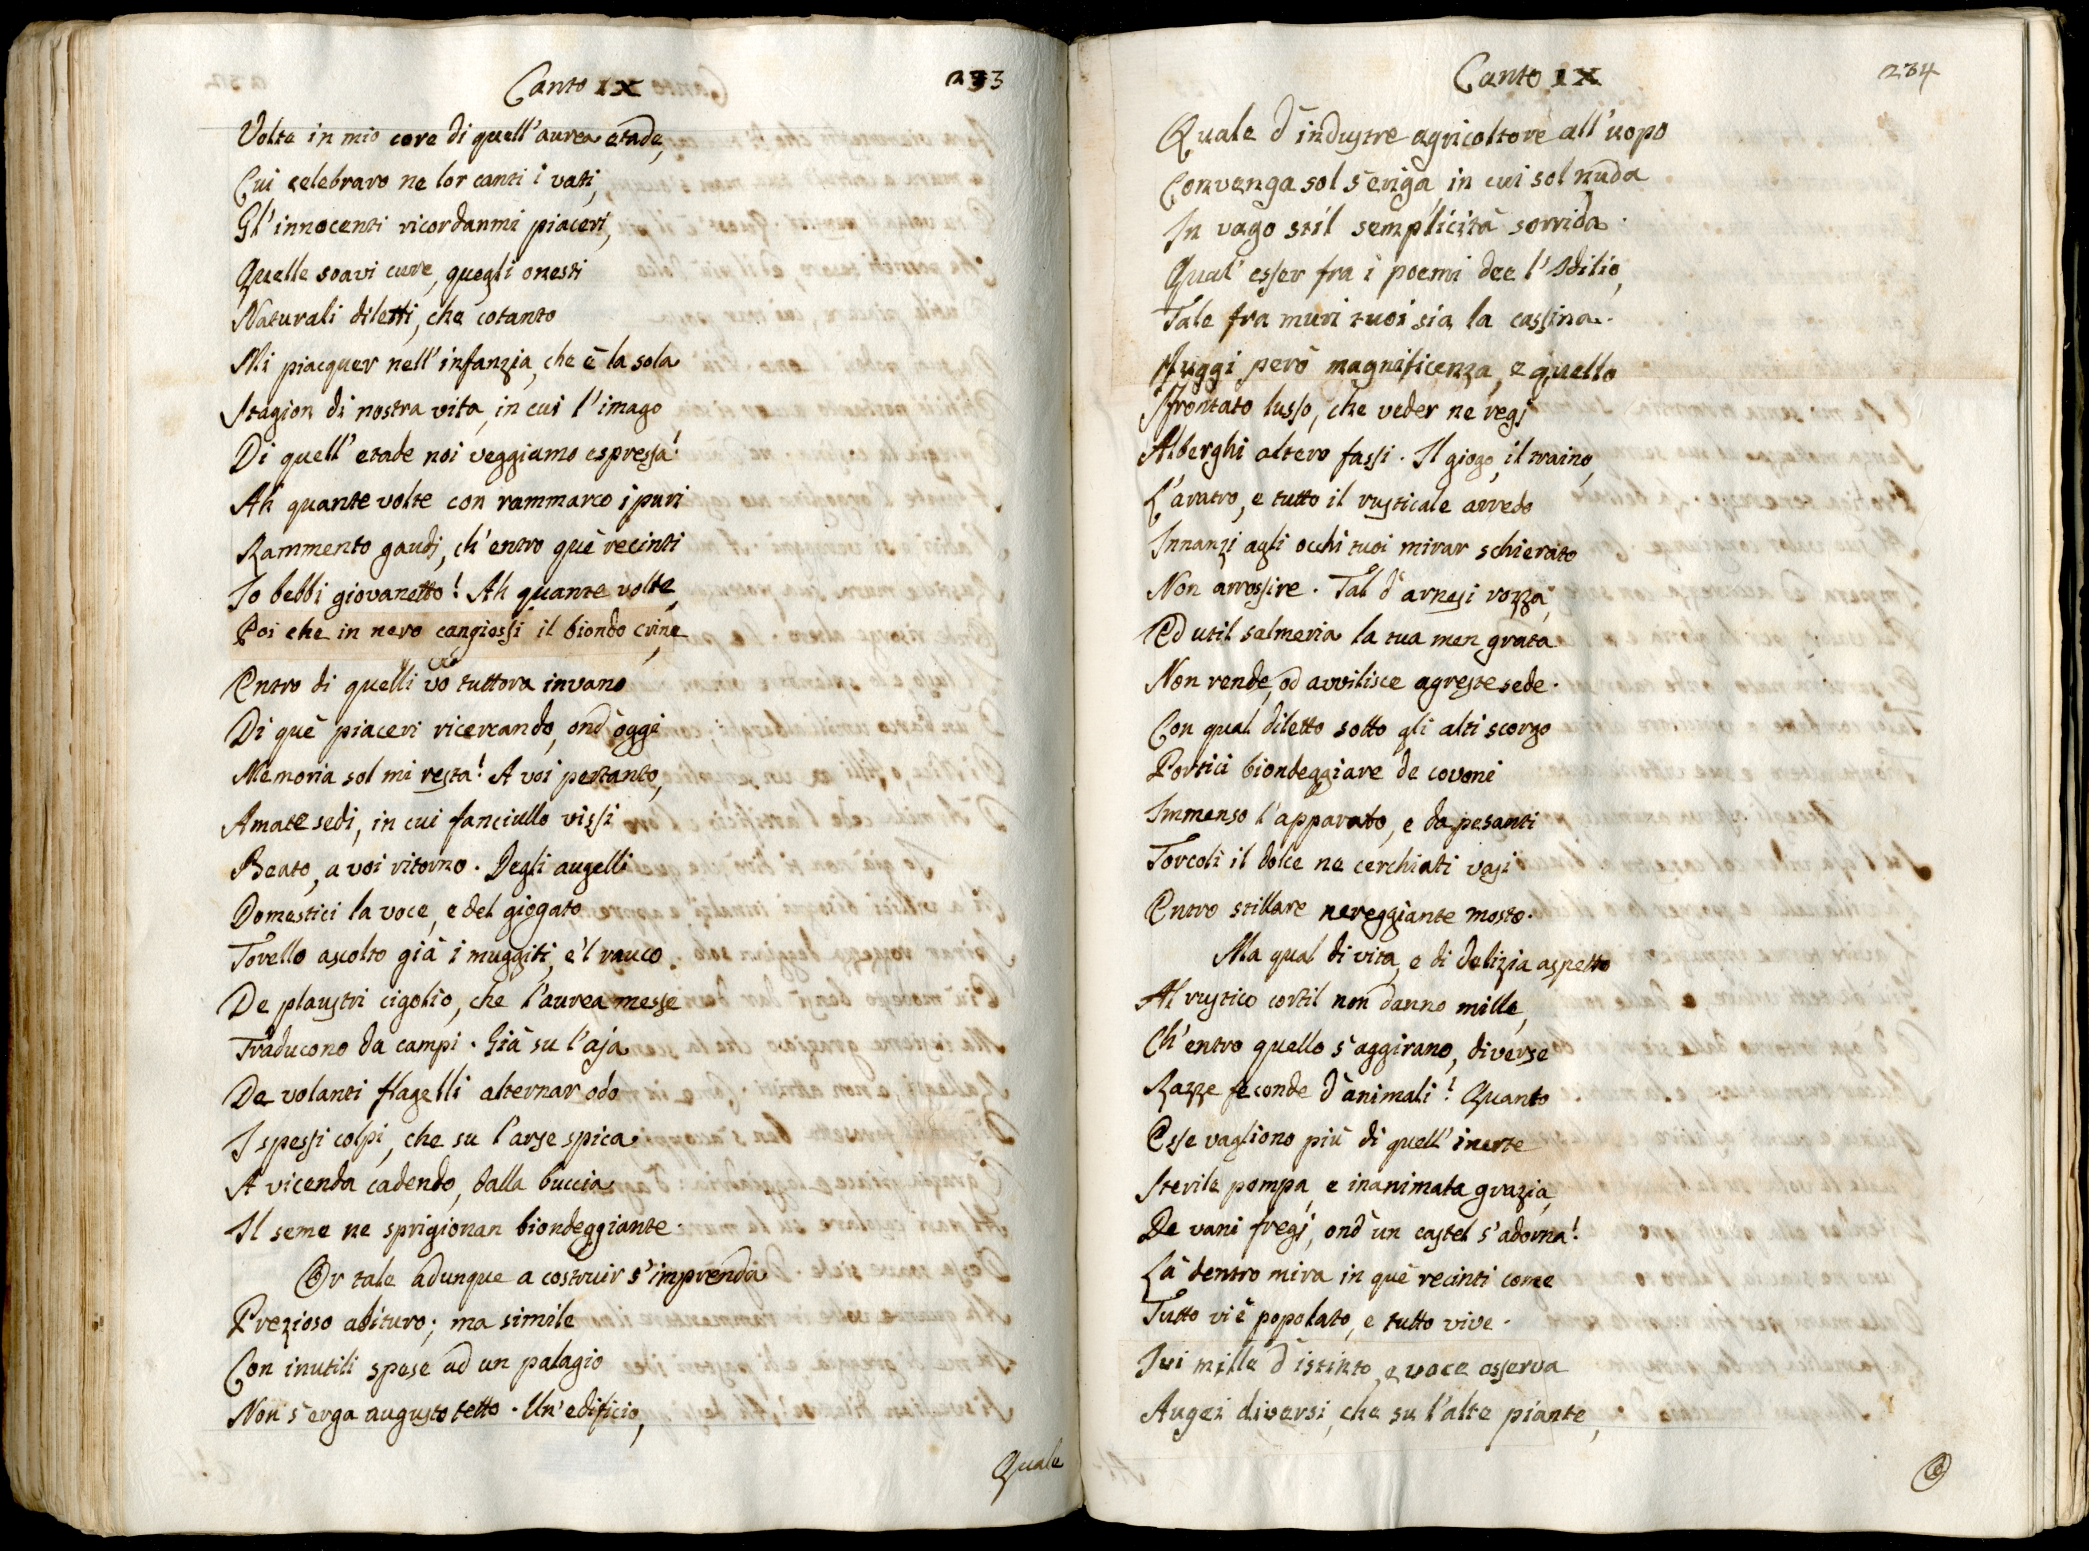 Canto IX
233
Volte in mio core di quell'aurea etade,
Cui celebraro ne lor canti i vati,
Gl'innocenti ricordanmi piaceri,
Quelle soavi cure, quegli onesti
Naturali diletti, che cotanto
Mi piacquer nell'infanzia, che è la sola
Stagion di nostra vita, in cui l'imago
Di quell'etade noi veggiamo espressa!
Ah quante volte con rammarco i puri
Rammento gaudj, ch'entro què recinti
Io bebbi giovanetto! Ah quante volte,
Poi che in nero cangiossi il biondo crine,
Entro di quelli vo tuttora invano
Di què piaceri ricercando, ond'oggi
Memoria sol mi resta! A voi pertanto,
Amate sedi, in cui fanciullo vissi
Beato, a voi ritorno. Degli augelli
Domestici la voce, e del giogato
Torello ascolto già i muggiti, e'l rauco
De plaustri cigolio, che l'aurea messe
Traducono da campi. Già su l'aja
De volanti flagelli alternar odo
I spessi colpi, che su l'arse spica
A vicenda cadendo, dalla buccia
Il seme ne sprigionan biondeggiante.
Or tale adunque a costruir s'imprenda
Prezioso abituro; ma simile
Con inutili spese ad un palagio
Non s'erga augusto tetto. Un'edificio,
Quale
Canto IX
234
Quale d'industre agricoltore all'uopo
Convenga sol s'eriga, in cui sol nuda
In vago stil semplicità sorrida.
Qual'esser fra i poemi dee l'Idilio,
Tale fra muri tuoi sia la cassina.
Fuggi però magnificenza, e quello
Sfrontato lusso, che veder ne regj
Alberghi altero fassi. Il giogo, il traino,
L'aratro, e tutto il rusticale arredo
Innanzi agli occhi tuoi mirar schierato
Non arrossire. Tal d'arnesi rozza,
Ed util salmeria la tua men grata
Non rende, od avvilisce agreste sede.
Con qual diletto sotto gli alti scorgo
Portici biondeggiare de covoni
Immenso l'apparato, e da pesanti
Torcoli il dolce ne cerchiati vasi
Entro stillare nereggiante mosto.
Ma qual di vita, e di delizia aspetto
Al rustico cortil non danno mille,
Ch'entro quello s'aggirano, diverse
Razze feconde d'animali! Quanto
Esse vagliono più di quell'inerte
Sterile pompa, e inanimata grazia,
De vani fregj, ond'un castel s'adorna!
Là dentro mira in què recinti come
Tutto vi è popolato, e tutto vive.
Ivi mille d'istinto, e voce osserva
Augei diversi, che su l'alte piante,
O